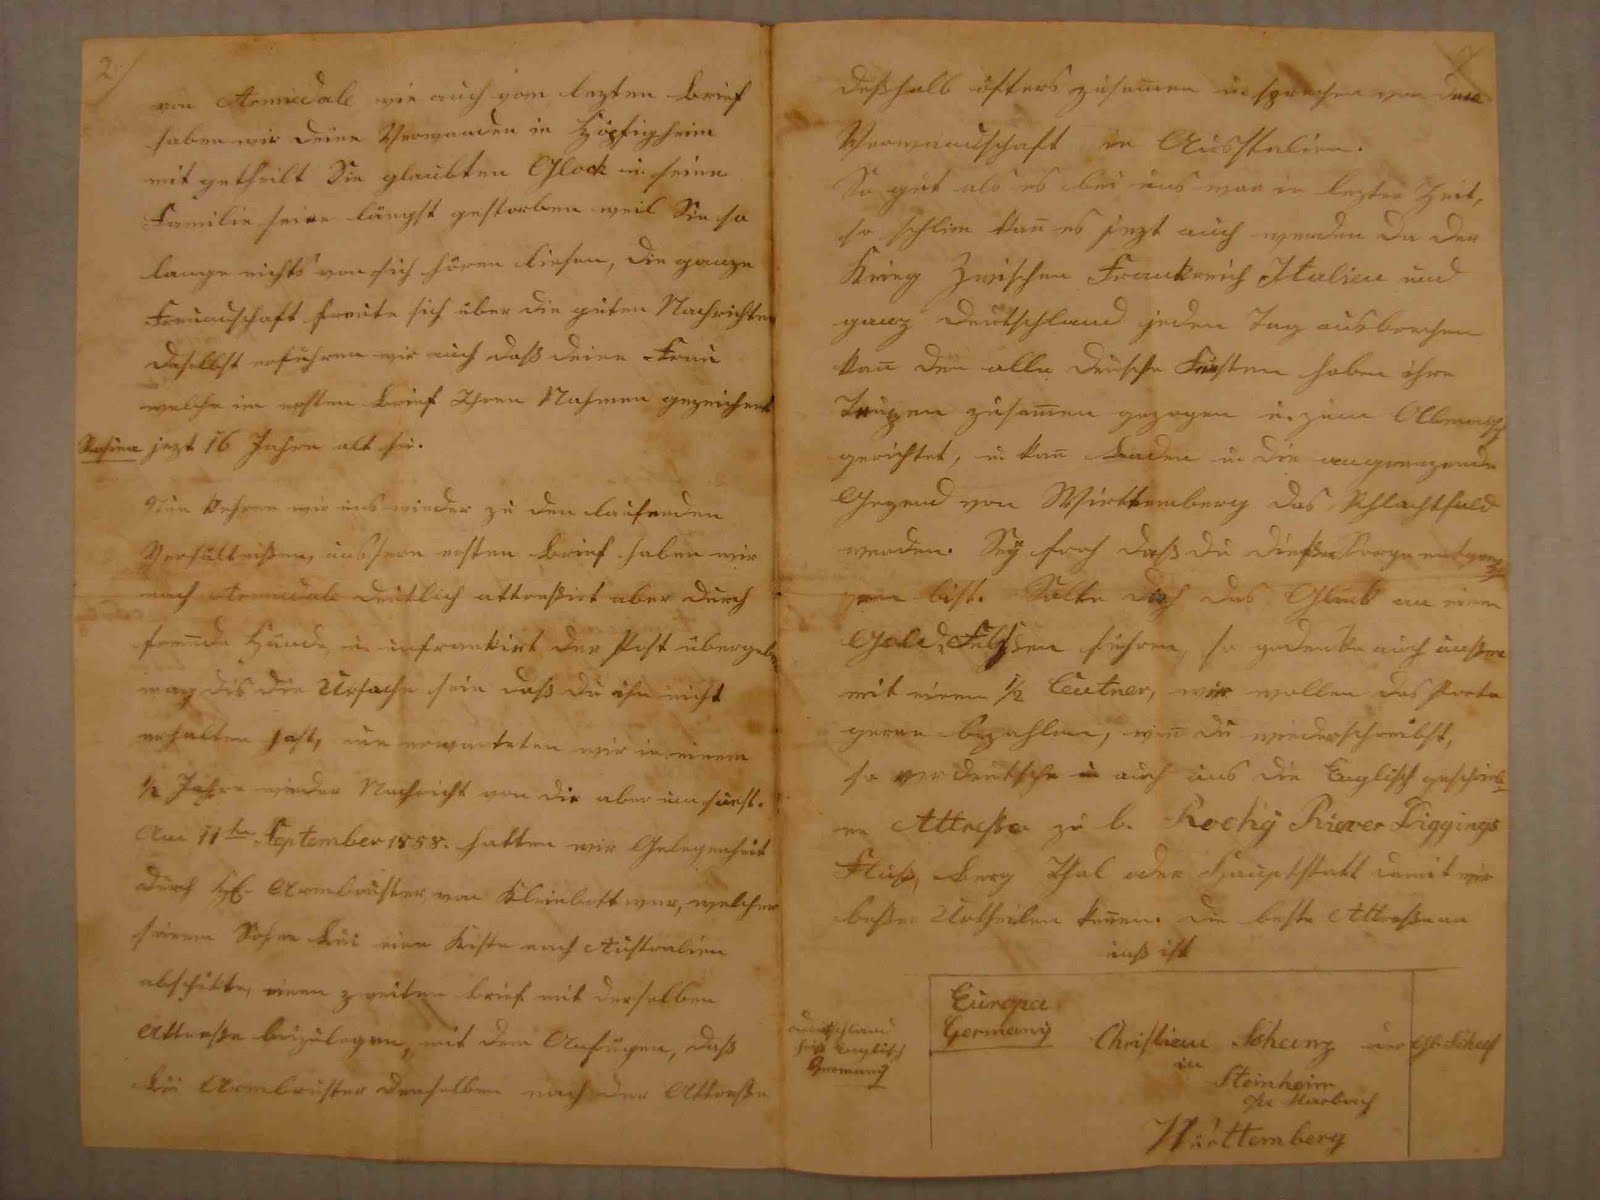 2
von Armidale wie auch vom lezten Brief
haben wir deine Verwanden in Höpfigheim
mit getheilt Sie glaubten Glock u. seine
Familie seien längst gestorben weil Sie so
lange nichts von sich hören liesen, die ganze
Freundschaft freute sich über die guten Nachrichten
daselbst erfuhren wir auch daß deine Frau
welche im ersten Brief Ihren Nahmen gezeichnet
Rosina jezt 16 Jahre alt sei.
Nun kehren wir uns wieder zu den laufenden
Verhältnißen, unsern ersten Brief haben wir
nach Armidale deutlich attreßirt aber durch
fremde Hände u. unfrankirt der Post übergeben
mag dis die Ursache sein daß du ihn nicht
erhalten hast, nun erwarteten wir in einem
1/2 Jahre wieder Nachricht von dir aber umsunst.
Am 11ten September 1858. hatten wir Gelegenheit
durch H. Armbruster von Kleinbottwar, welcher
seinem Sohne eine Kiste nach Australien
abschikte, einen zweiten Brief mit derselben
Attreße beizulegen, mit dem Anfügen, daß
Armbruster denselben nach der Attreße
deßhalb öfters zusamen u. sprechen von der
Verwandschaft in Australien.
So gut als es bei uns war in lezter Zeit,
so schlim kan es jezt auch werden da der
Krieg Zwischen Frankreich Italien und
ganz Deutschland jeden Tag ausbrechen
kan den alle deusche Fürsten haben ihre
Trupen zusamen gezogen u. zum
gerichtet, u. kan Baden u. die angrenzende
Gegend von Württemberg das Schlachtfeld
werden. Sey froh daß du dießer Sorge
bist. Solte dich das Glück an einen
Gold Felßen führen, so gedenke auch unßer
mit einem 1/2 Centner, wir wollen das Porto
gerne bezahlen, wen du wiederschreibst,
so verdeutsche auch uns die Englisch geschrieb
ne Attreße z. b. Rocky Riever Diggings
Fluß, Berg Thal oder Hauptstatt damit wir
beßer Urtheilen kenen. die beste Attreße an
unß ist
Deutschland
heißt englisch
Germany
Europa
Germany
Christian Schanz
in
Steinheim
Marbach
Württemberg